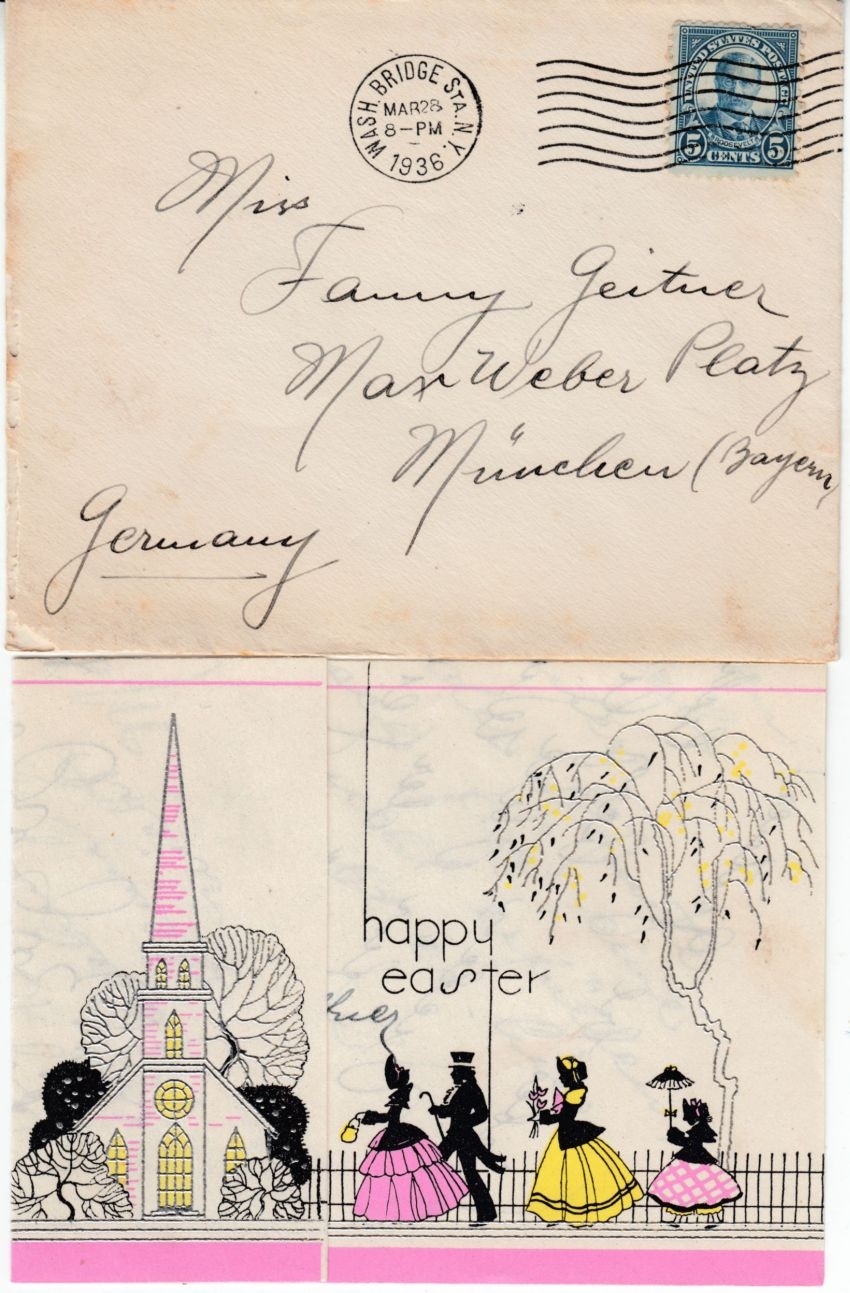 WASH. BRIDGE STA. N.Y.
MAR 28
8-PM
1936
UNITED STATES POSTAGE
ROOSEVELT
5 CENTS 5
Miss
Fanny Geitner
Max Weber Platz
München (Bayern)
Germany
happy
easter